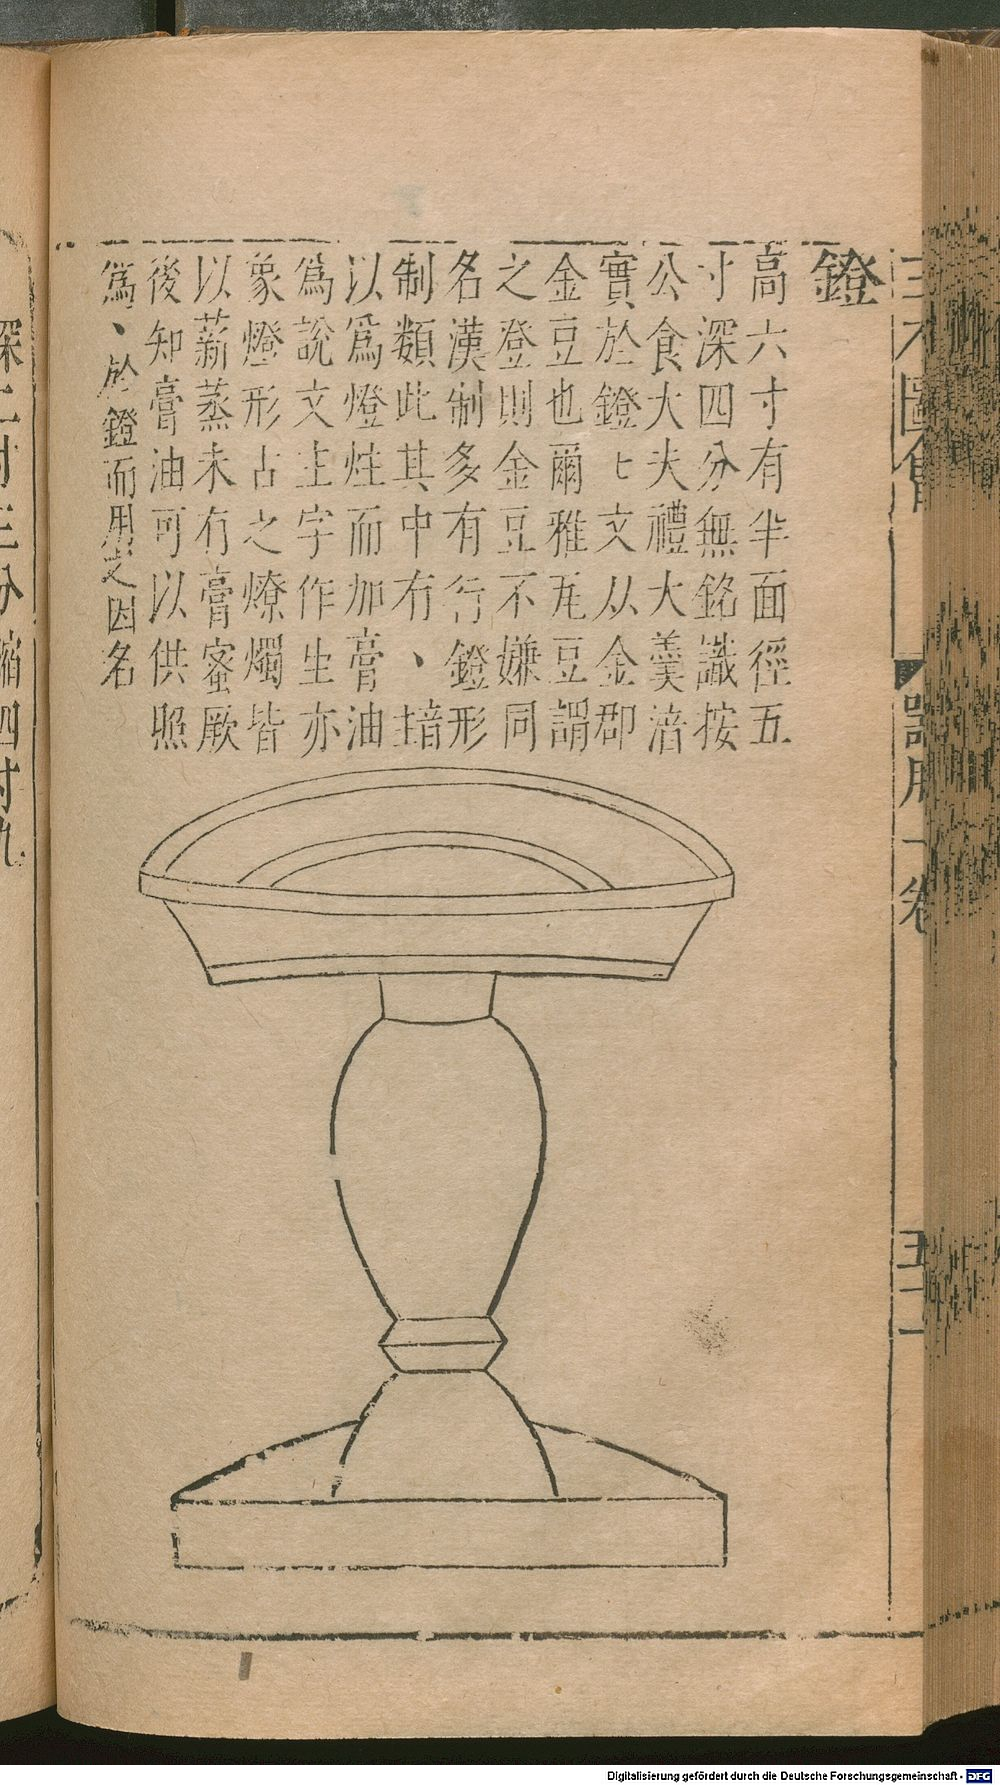 鐙
高六寸有半面徑五
寸深四分無銘識按
公食大夫禮大羹湆
實於鐙上文从金郎
金豆也爾雅瓦豆謂
之登則金豆不嫌同
名漢制多有行鐙形
制類此其中有、音主
以爲燈炷而加膏油
爲說文主字作𡉚亦
象燈形古之燎燭皆
以薪蒸未有膏蜜厥
後知膏油可以供照
爲、於鐙而用之因名
器用一卷
Digitalisierung gefördert durch die Deutsche Forschungsgemeinschaft - DFG